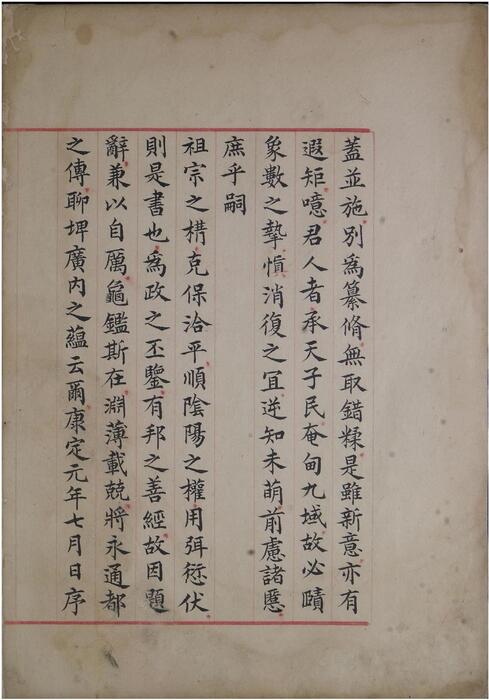 蓋並施別爲纂脩無取錯糅是雖新意亦有
遐矩噫君人者承天子民奄甸九域故必賾
象數之摯慎消復之冝逆知未萌前慮諸慝
庶乎嗣
祖宗之構克保洽平順陰陽之權用弭愆伏
則是書也爲政之丕鑒有邦之善經故因題
辭兼以自厲龜鑑斯在淵薄載兢將永通都
之傳聊埤廣内之蘊云爾康定元年七月日序